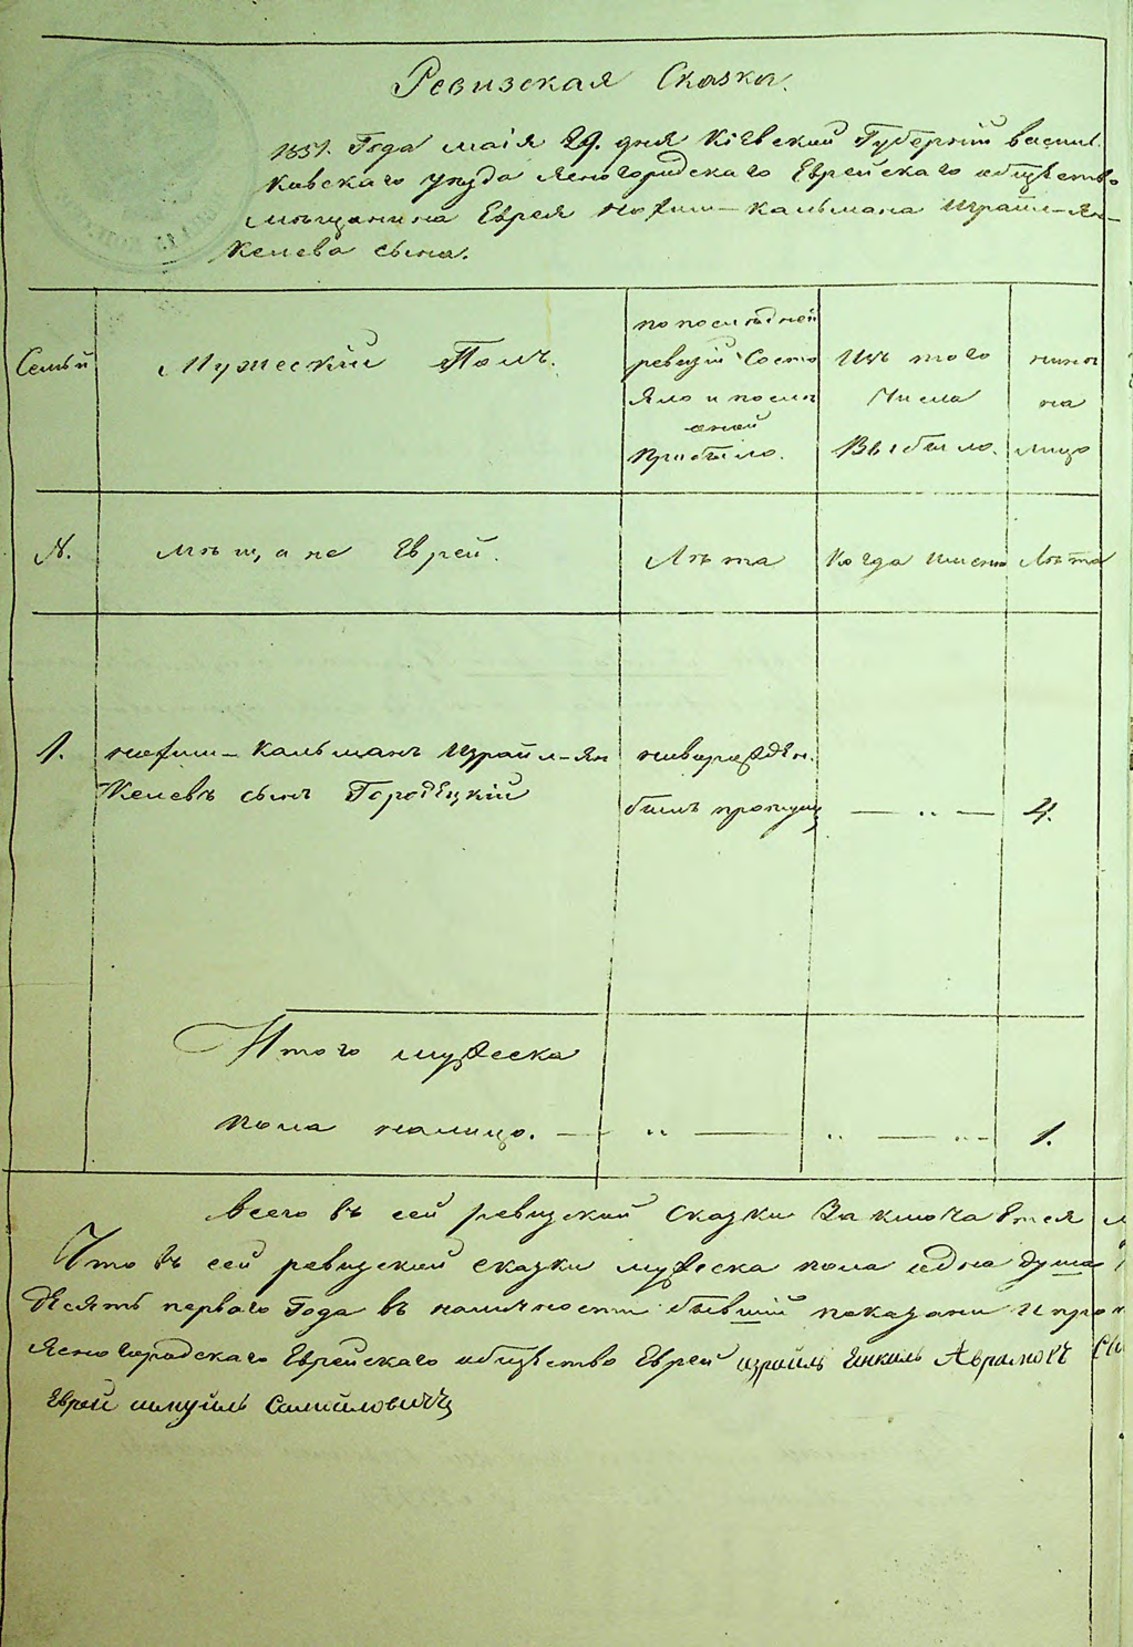 Ревизская Сказка.
1851. Года маія 29. дня Кіевской Губерніи Васил
ковскаго уезда Ясногородскаго Еврейскаго общества
мѣщанина Еврея Кальмана Израйл-Ян
келева сына.
Семьи
Мужескій Полъ.
по последней
ревизіи Состо
яло и после
оной
прибыло.
Изъ того
Числа
Выбыло.
ныне
на
лицо
N.
мѣщане Еврей.
Лѣта
Когда имено
Лѣта
1.
Кальманъ Израйл-Ян
Келевъ сынъ Городецкій
новорожден.
былъ пропущ
— „ —
4.
Итого мужеска
пола налицо. — „ — „ — „ — 1.
Всего въ сей ревизской сказки Заключается
Что въ сей ревизской сказки мужеска пола одна душа
десять перваго Года въ наличности бывшій показани и про
Ясногородскаго Еврейскаго общество Еврей израйль Инкель Аврамовъ
Еврей шмуйль Самйловичъ